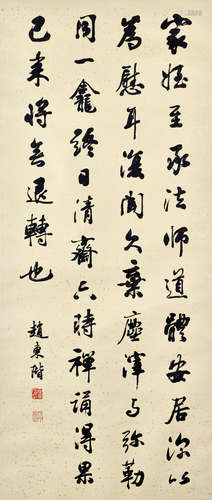 家姪至承法师道體安居深以
為慰耳復聞久棄塵滓与弥勒
同一龕終日清齋六時禪誦得果
已来将無退轉也
趙東階